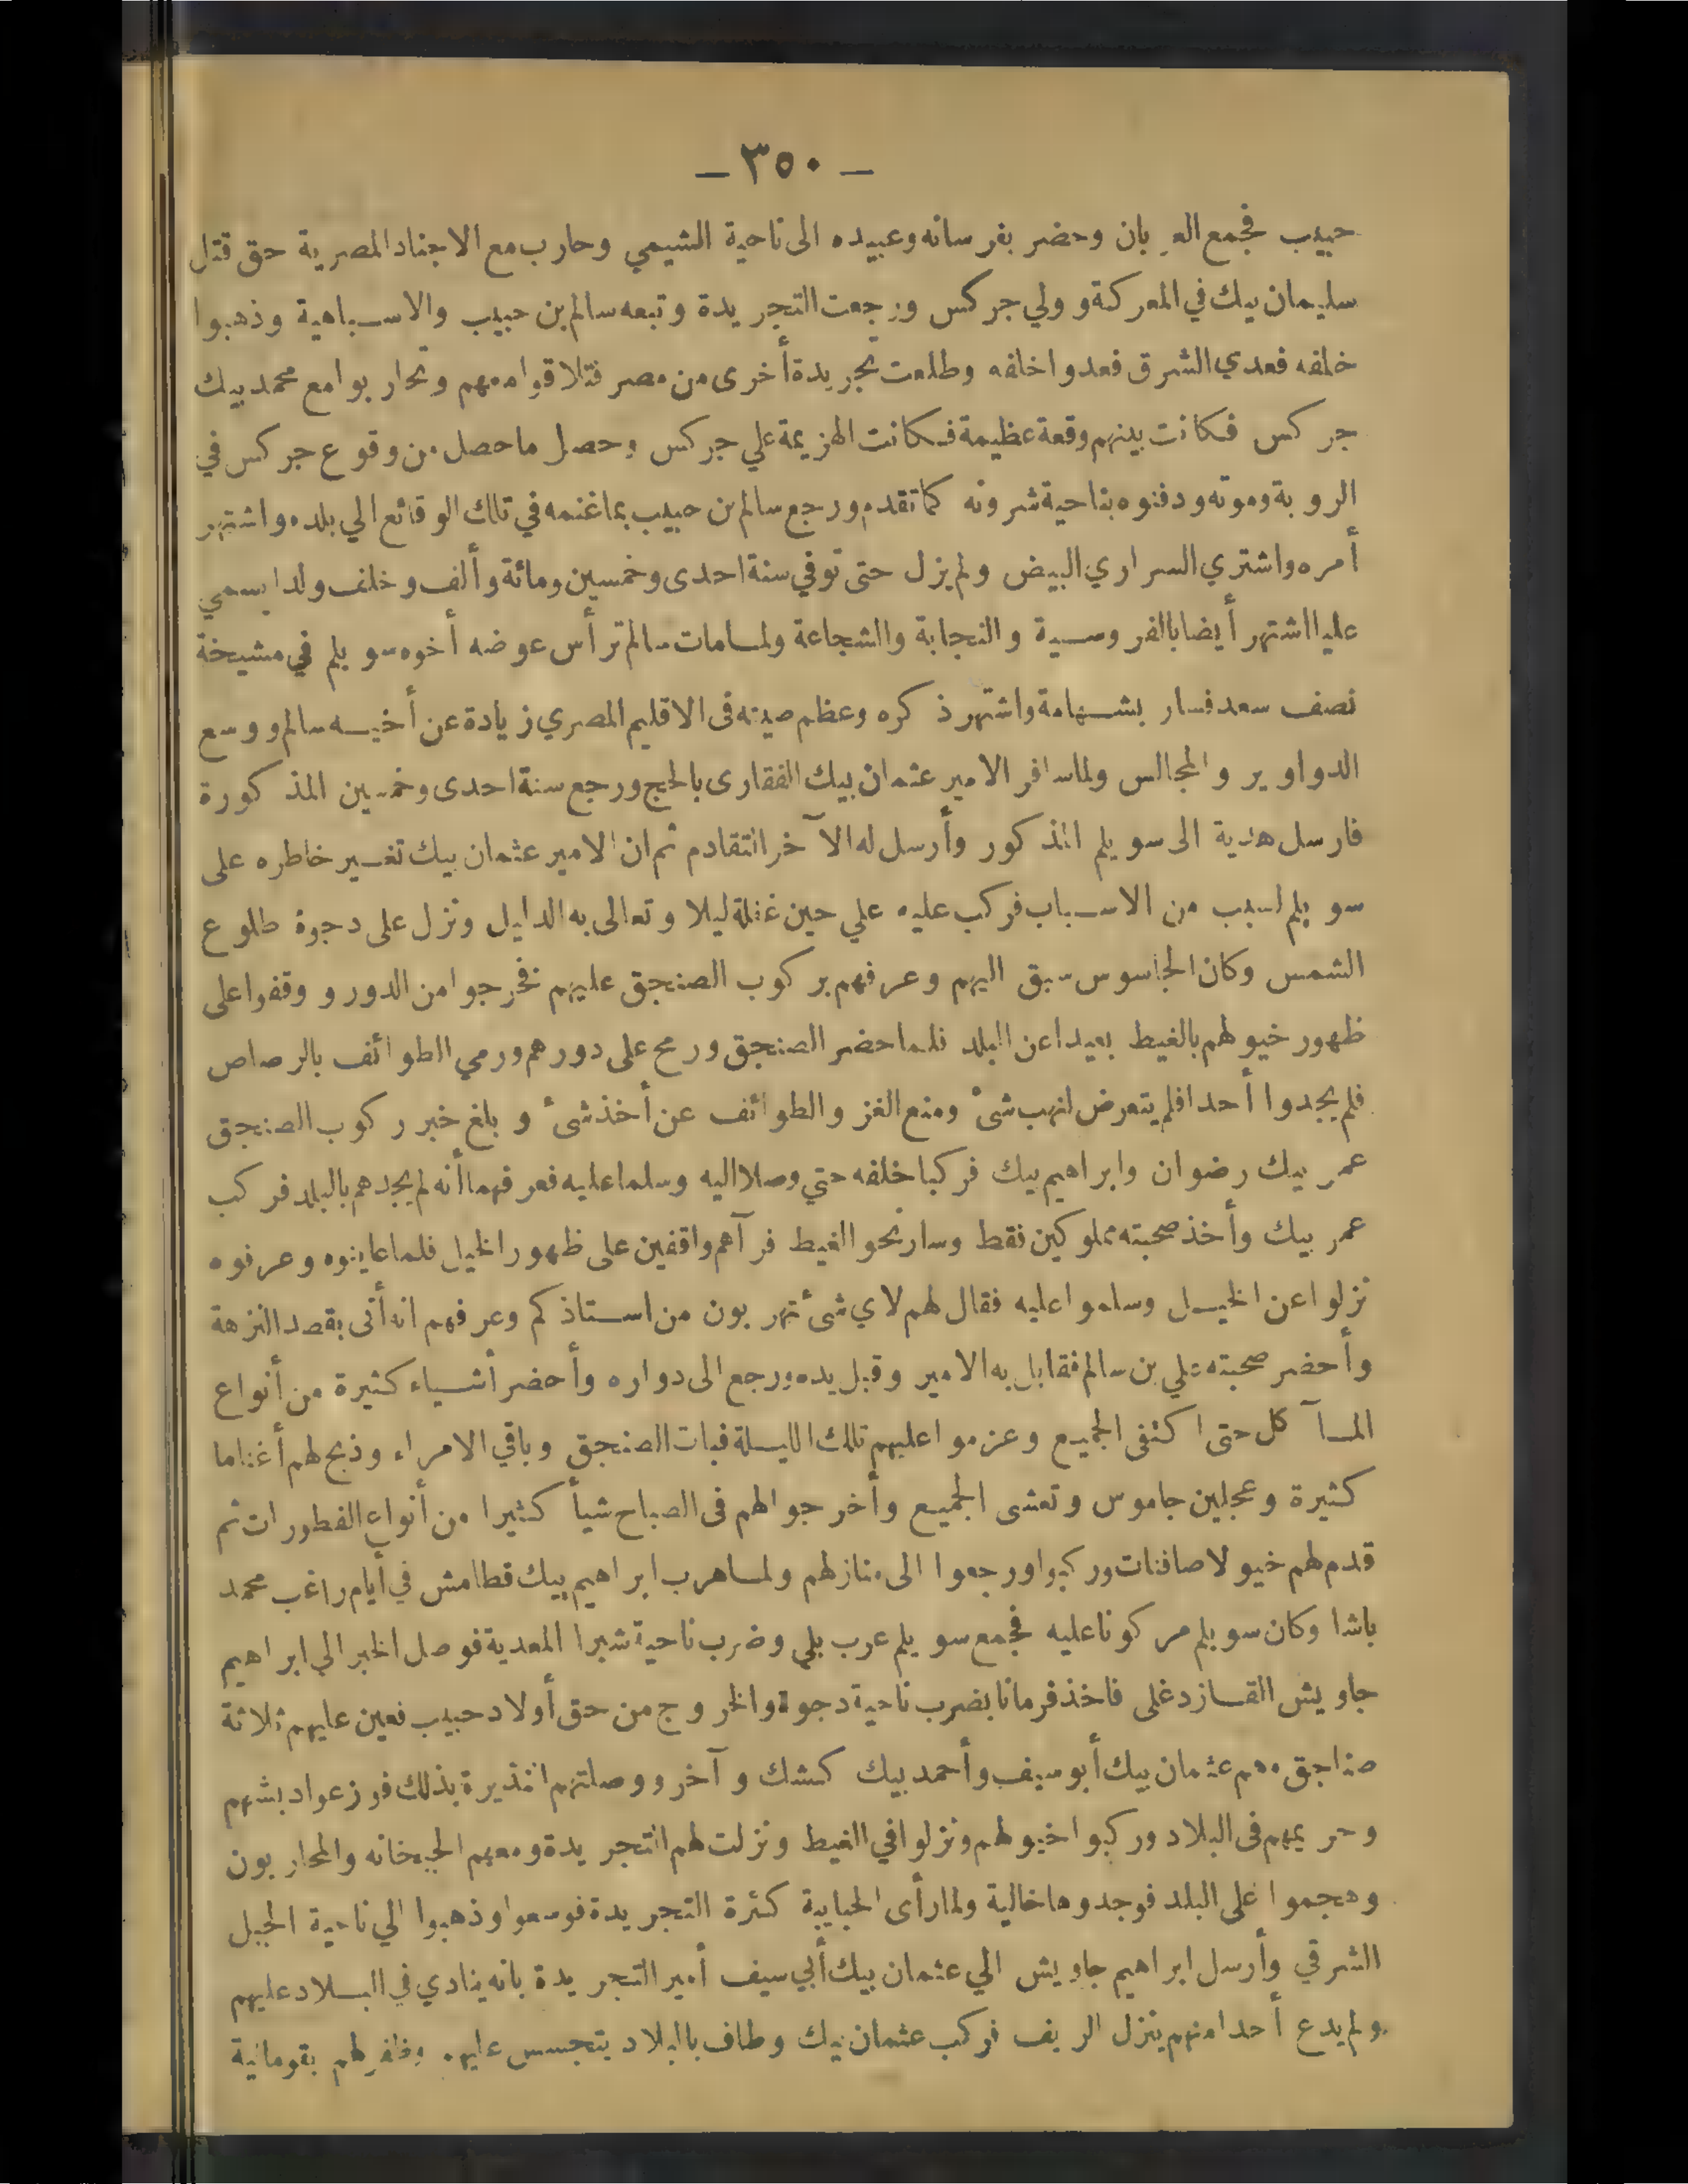 — ٣٥٠ —
حبيب فجمع العربان وحضر بفرسانه وعبيده الى ناحية الشيمي وحارب مع الاجناد المصرية حتى قتل
سليمان بيك في المعركة وولي جركس ورجعت التجريدة وتبعه سالم بن حبيب والاسباهية وذهبوا
خلفه فعدي الشرق فعدوا خلفه وطلعت تجريدة أخرى من مصر فتلاقوا معهم وتحاربوا مع محمد بيك
جركس فكانت بينهم وقعة عظيمة فكانت الهزيمة علي جركس وحصل ماحصل من وقوع جركس في
الروبة وموته ودفنوه بناحية شرونه كما تقدم ورجع سالم بن حبيب بما غنمه في تلك الوقائع الي بلده واشتهر
أمره واشتري السراري البيض ولم يزل حتى توفي سنة احدى وخمسين ومائة وألف وخلف ولدا يسمي
عليا اشتهر أيضا بالفروسية والنجابة والشجاعة ولمامات سالم ترأس عوضه أخوه سويلم في مشيخة
نصف سعد فسار بشهامة واشتهر ذكره وعظم صيته فى الاقليم المصري زيادة عن أخيه سالم ووسع
الدواوير والمجالس ولما سافر الامير عثمان بيك الفقارى بالحج ورجع سنة احدى وخمسين المذكورة
فارسل هدية الى سويلم المذكور وأرسل له الآخر التقادم ثم ان الامير عثمان بيك تغير خاطره على
سويلم لسبب من الاسباب فركب عليه علي حين غفلة ليلا وتعالى به الدليل ونزل على دجوة طلوع
الشمس وكان الجاسوس سبق اليهم وعرفهم بركوب الصنجق عليهم فخرجوا من الدور ووقفوا على
ظهور خيولهم بالغيط بعيدا عن البلد فلما حضر الصنجق ورمح على دورهم ورمي الطوائف بالرصاص
فلم يجدوا أحدا فلم يتعرض لنهب شئ ومنع الغز والطوائف عن أخذ شئ وبلغ خبر ركوب الصنجق
عمر بيك رضوان وابراهيم بيك فركبا خلفه حتي وصلا اليه وسلما عليه فعرفهما أنه لم يجدهم بالبلد فركب
عمر بيك وأخذ صحبته مملوكين فقط وسار نحو الغيط فرآهم واقفين على ظهور الخيل فلما عاينوه وعرفوه
نزلوا عن الخيل وسلموا عليه فقال لهم لاي شئ تهربون من استاذكم وعرفهم انه أتى بقصد النزهة
وأحضر صحبته علي بن سالم فقابل به الامير وقبل يده ورجع الى دواره وأحضر أشياء كثيرة من أنواع
المآكل حتى اكتفى الجميع وعزموا عليهم تلك الليلة فبات الصنجق وباقي الامراء وذبح لهم أغناما
كثيرة وعجلين جاموس وتعشى الجميع وأخرجوا لهم فى الصباح شيأ كثيرا من أنواع الفطورات ثم
قدم لهم خيولا صافنات وركبوا ورجعوا الى منازلهم ولما هرب ابراهيم بيك قطامش في أيام راغب محمد
باشا وكان سويلم مركونا عليه فجمع سويلم عرب بلي وضرب ناحية شبرا المعدية فوصل الخبر الي ابراهيم
جاويش القازدغلى فاخذ فرمانا بضرب ناحية دجوة والخروج من حق أولاد حبيب فعين عليهم ثلاثة
صناجق وهم عثمان بيك أبو سيف وأحمد بيك كشك وآخر ووصلتهم النذيرة بذلك فوزعوا دبشهم
وحريمهم فى البلاد وركبوا خيولهم ونزلوا في الغيط ونزلت لهم التجريدة ومعهم الجبخانه والمحاربون
وهجموا على البلد فوجدوها خالية ولما رأى الحبايبة كثرة التجريدة فوسعوا وذهبوا الي ناحية الجبل
الشرقي وأرسل ابراهيم جاويش الي عثمان بيك أبي سيف أمير التجريدة بانه ينادي في البلاد عليهم
ولم يدع أحدا منهم ينزل الريف فركب عثمان بيك وطاف بالبلاد يتجسس عليهم وظفر لهم بقومانية